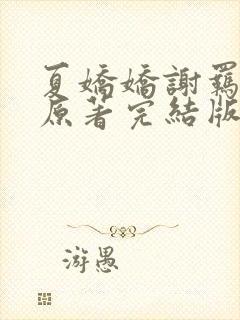 夏嬌嬌謝羈
原著完結版
游愚